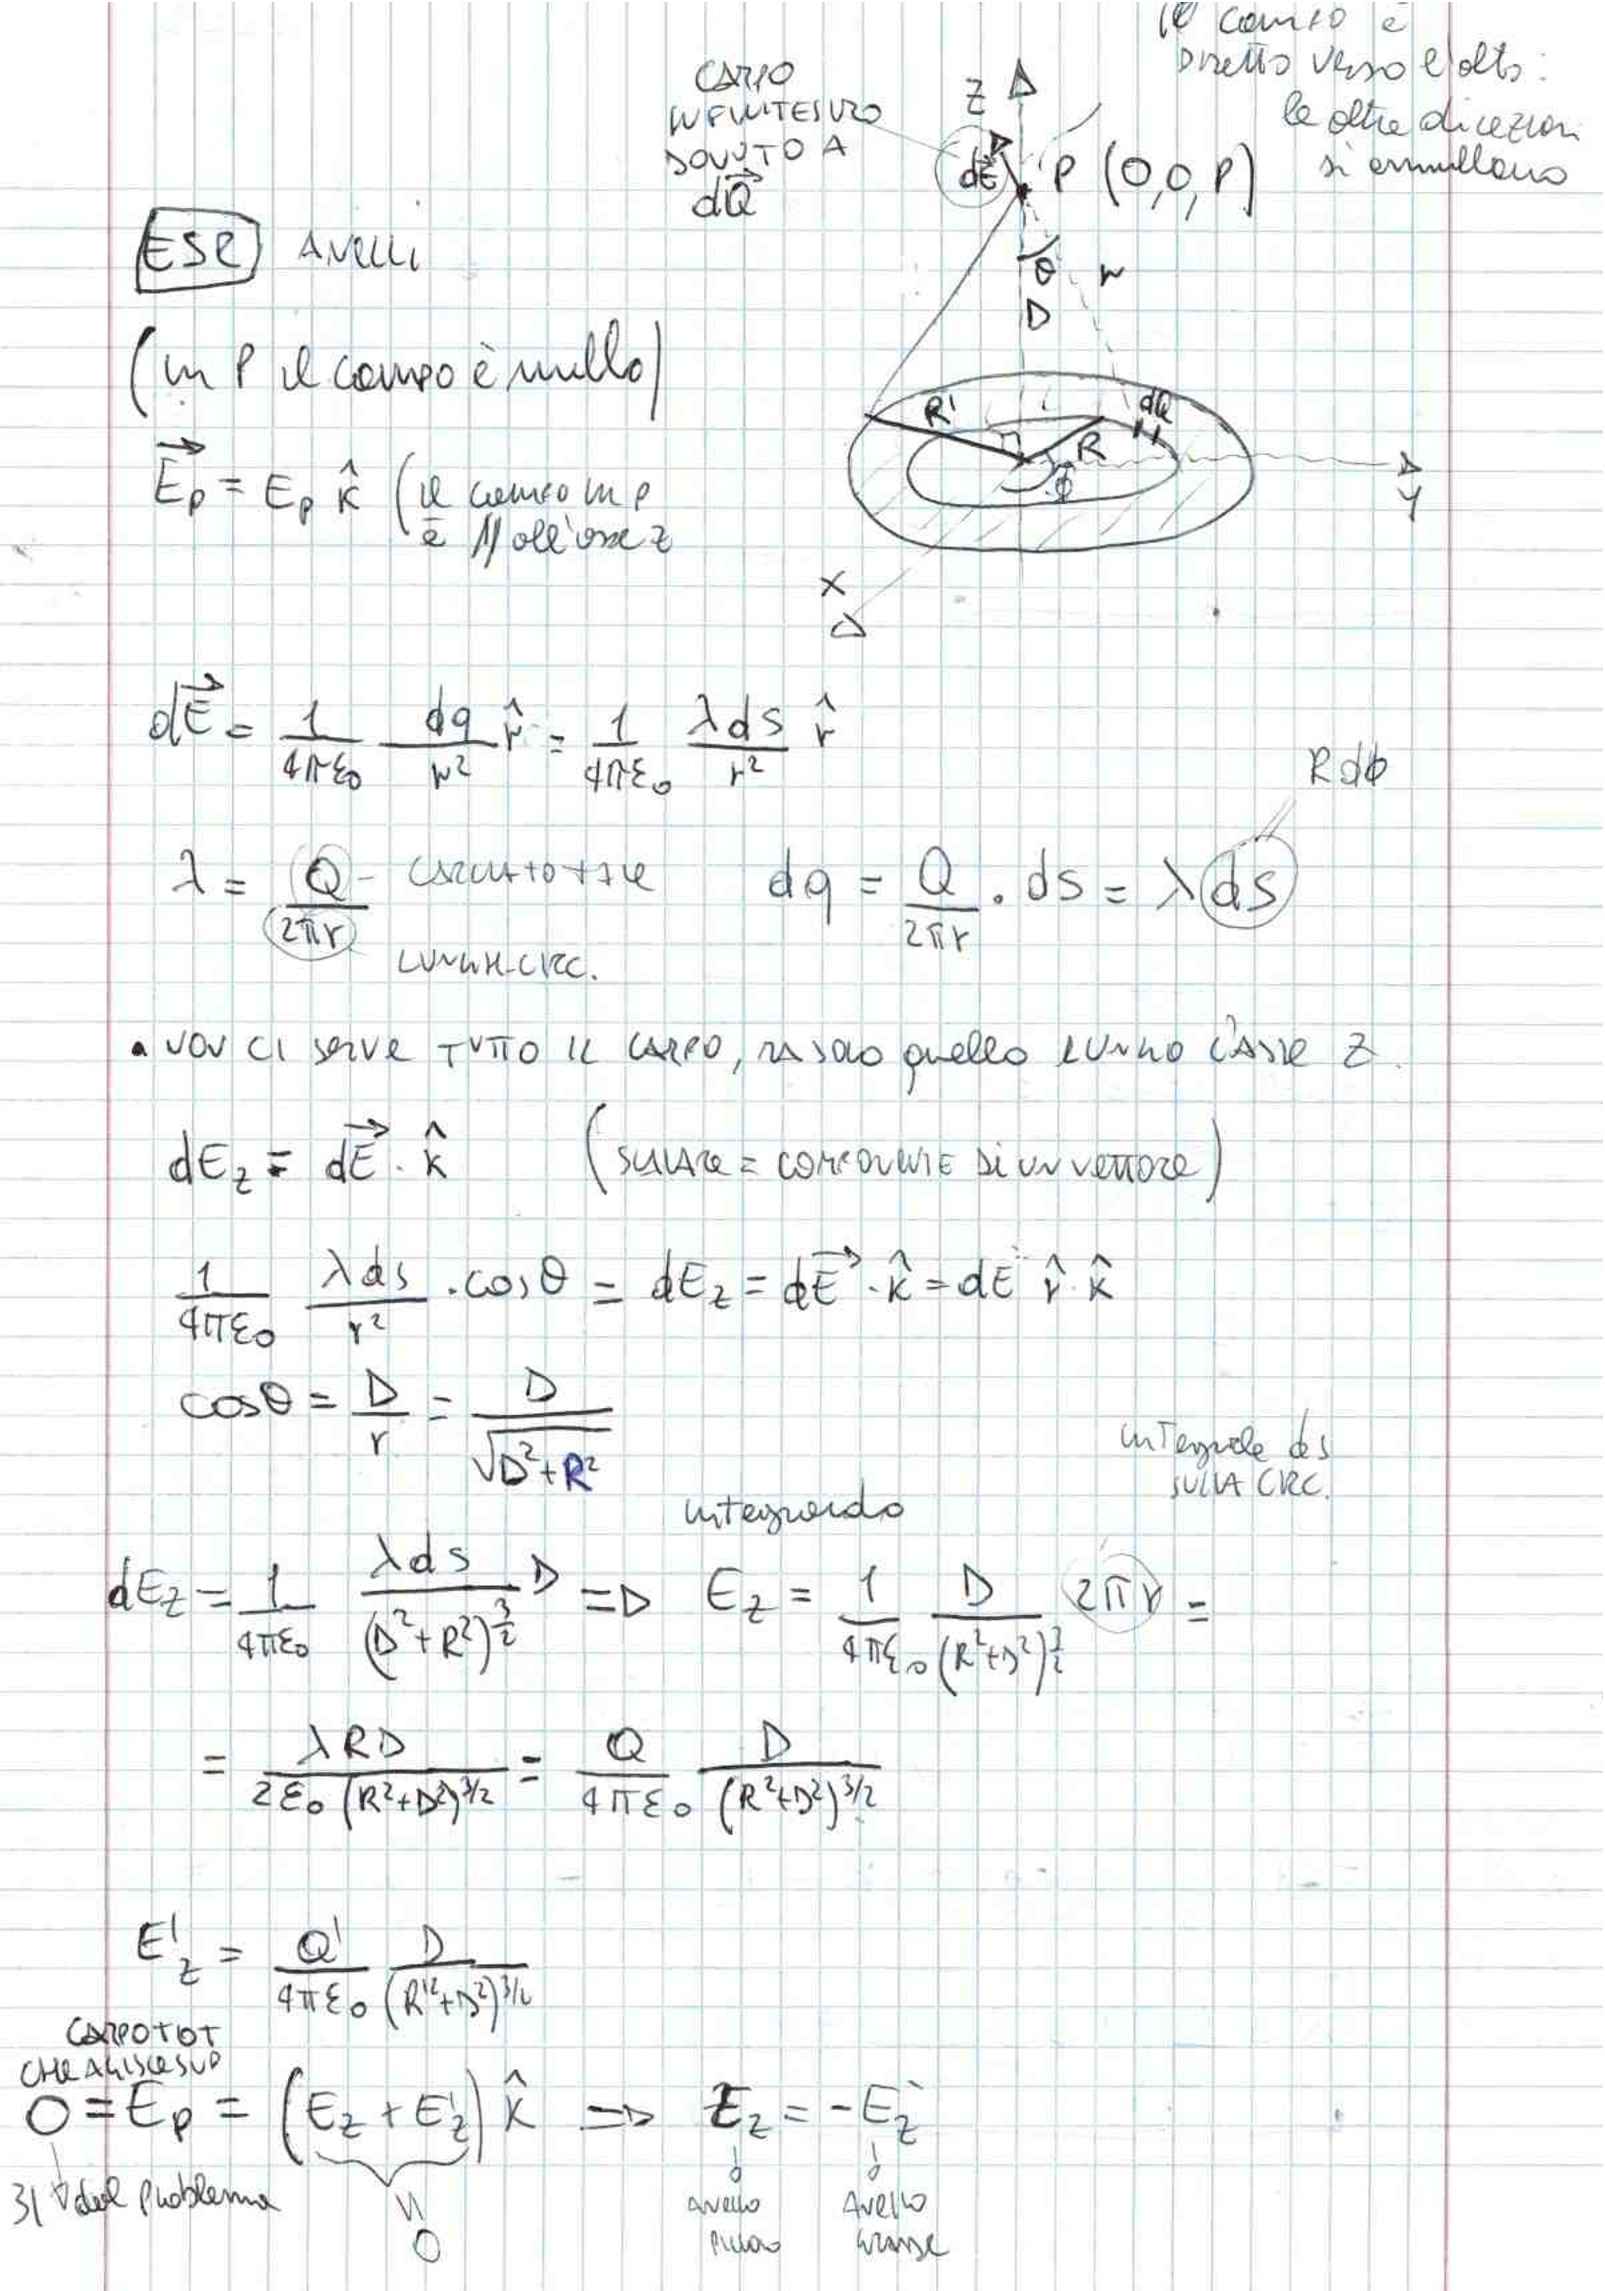 il campo è
diretto verso l'alto:
le altre direzioni
si annullano
CAMPO
INFINITESIMO
DOVUTO A
dQ⃗
Z
dE⃗
P (0,0,P)
θ r
D
ESR ANELLI
(in P il campo è nullo)
R' R dQ
ϕ
Y
X
E⃗p = Ep k̂ (il campo in P
è // all'asse z
dE⃗ = 1/4πε₀ dq/r² r̂ = 1/4πε₀ λds/r² r̂
Rdϕ
λ = Q/2πr - CARICA TOTALE dq = Q/2πr · ds = λ ds
LUNGH. CIRC.
• NON CI SERVE TUTTO IL CAMPO, MA SOLO quello LUNGO L'ASSE Z.
dEz = dE⃗ · k̂ (SCALARE = COMPONENTE DI UN VETTORE)
1/4πε₀ λds/r² · cosθ = dEz = dE⃗ · k̂ = dE r̂ · k̂
cosθ = D/r = D/√D²+R²
integrale ds
SULLA CIRC.
integrando
dEz = 1/4πε₀ λds/(D²+R²)^3/2 D => Ez = 1/4πε₀ D/(R²+D²)^3/2 2πr =
= λRD/2ε₀(R²+D²)^3/2 = Q/4πε₀ D/(R²+D²)^3/2
E'z = Q'/4πε₀ D/(R'²+D²)^3/2
CAMPO TOT
CHE AGISCE SU P
0 = Ep = (Ez + E'z) k̂ => Ez = -E'z
31 del problema
0
anello
piccolo
Anello
grande